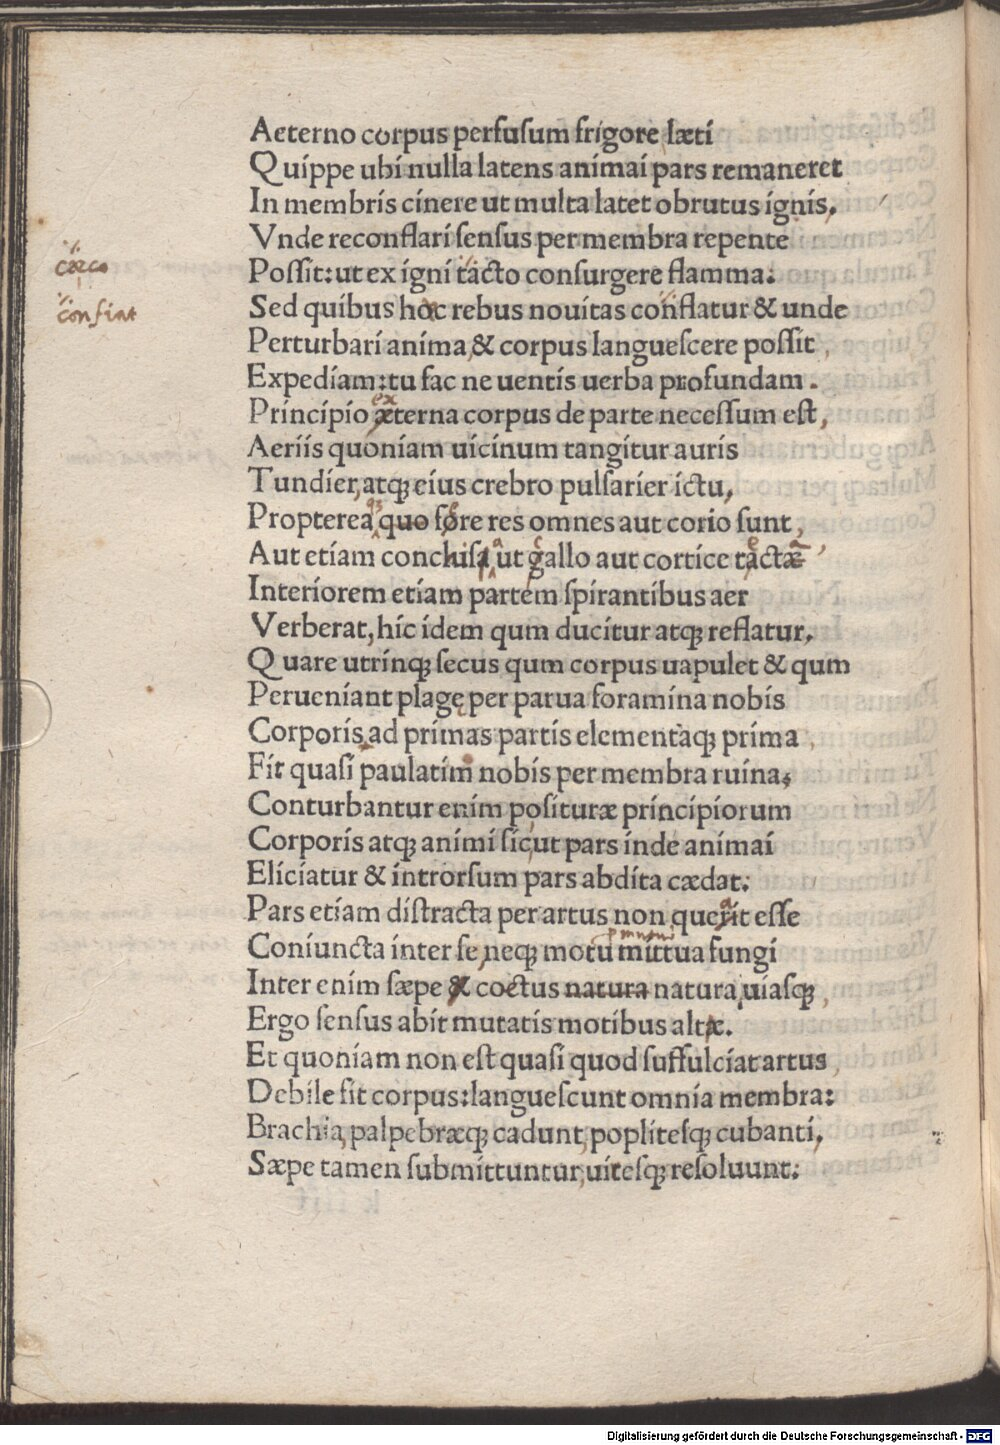 Aeterno corpus perfusum frigore læti
Quippe ubi nulla latens animai pars remaneret
In membris cinere ut multa latet obrutus ignis.
Vnde reconflari sensus per membra repente
cæco
Possit: ut ex igni tacto consurgere flamma:
confiat
Sed quibus hoc rebus nouitas conflatur & unde
Perturbari anima, & corpus languescere possit,
Expediam: tu fac ne uentis uerba profundam.
ex
Principio æterna corpus de parte necessum est,
Aeriis quoniam uicinum tangitur auris
Tundier, atq; eius crebro pulsarier ictu,
Propterea quo fore res omnes aut corio sunt,
Aut etiam conchisa ut gallo aut cortice tactæ
Interiorem etiam partem spirantibus aer
Verberat, hic idem qum ducitur atq; reflatur,
Quare utrinq; secus qum corpus uapulet & qum
Perueniant plagę per parua foramina nobis
Corporis, ad primas partis elementaq; prima,
Fit quasi paulatim nobis per membra ruina,
Conturbantur enim posituræ principiorum
Corporis atq; animi sic, ut pars inde animai
Eliciatur & introrsum pars abdita cædat:
Pars etiam distracta per artus non querit esse
Coniuncta inter se, neq; motu mittua fungi
Inter enim sæpe & coetus natura natura, uiasq;,
Ergo sensus abit mutatis motibus altæ.
Et quoniam non est quasi quod suffulciat artus,
Debile fit corpus: languescunt omnia membra:
Brachia, palpebræq; cadunt, poplitesq; cubanti,
Sæpe tamen submittuntur, uitesq; resoluunt:
Digitalisierung gefördert durch die Deutsche Forschungsgemeinschaft - DFG